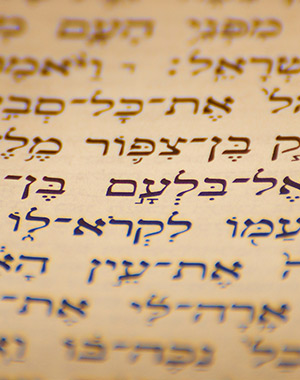 מִפְּנֵי הָעָם מ
שְׂרָאֵל׃ וַיֹּאמֶ
ל אֶת־כָּל־סְבִ
ק בֶּן־צִפּוֹר מֶלֶ
אֶל־בִּלְעָם בֶּן־
עַמּוֹ לִקְרֹא־לוֹ
ה אֶת־עֵין הָאָ
אָרָה־לִּי אֶת־
ל נַכֶּה־בּוֹ וַאֲ